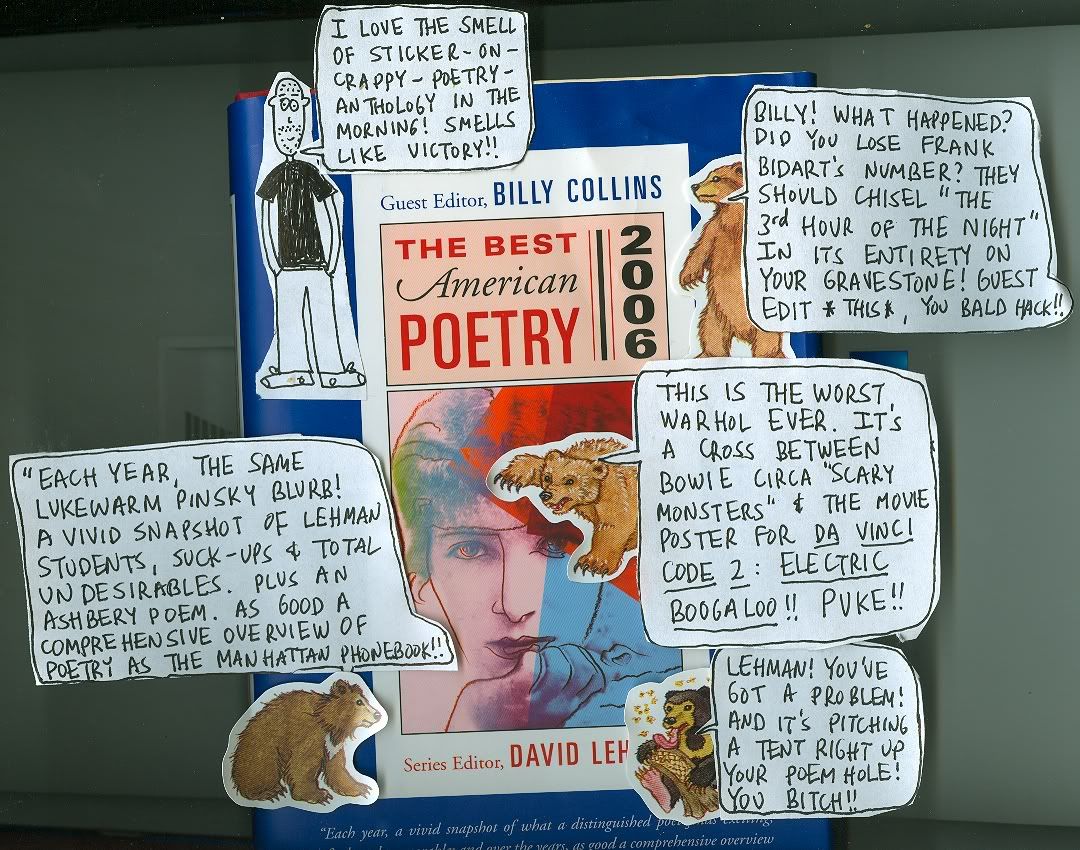 I LOVE THE SMELL
OF STICKER-ON-
CRAPPY-POETRY-
ANTHOLOGY IN THE
MORNING! SMELLS
LIKE VICTORY!!
BILLY! WHAT HAPPENED?
DID YOU LOSE FRANK
BIDART'S NUMBER? THEY
SHOULD CHISEL "THE
3rd HOUR OF THE NIGHT"
IN ITS ENTIRETY ON
YOUR GRAVESTONE! GUEST
EDIT *THIS*, YOU BALD HACK!!
Guest Editor, BILLY COLLINS
THE BEST
American
POETRY
2006
THIS IS THE WORST
WARHOL EVER. IT'S
A CROSS BETWEEN
BOWIE CIRCA "SCARY
MONSTERS" & THE MOVIE
POSTER FOR DA VINCI
CODE 2: ELECTRIC
BOOGALOO!! PUKE!!
"EACH YEAR, THE SAME
LUKEWARM PINSKY BLURB!
A VIVID SNAPSHOT OF LEHMAN
STUDENTS, SUCK-UPS & TOTAL
UNDESIRABLES. PLUS AN
ASHBERY POEM. AS GOOD A
COMPREHENSIVE OVERVIEW OF
POETRY AS THE MANHATTAN PHONEBOOK!!
LEHMAN! YOU'VE
GOT A PROBLEM!
AND IT'S PITCHING
A TENT RIGHT UP
YOUR POEM HOLE!
YOU BITCH!!
Series Editor, DAVID LEH
"Each year, a vivid snapshot of what a distinguished poet exciting,
and over the years, as good a comprehensive overview